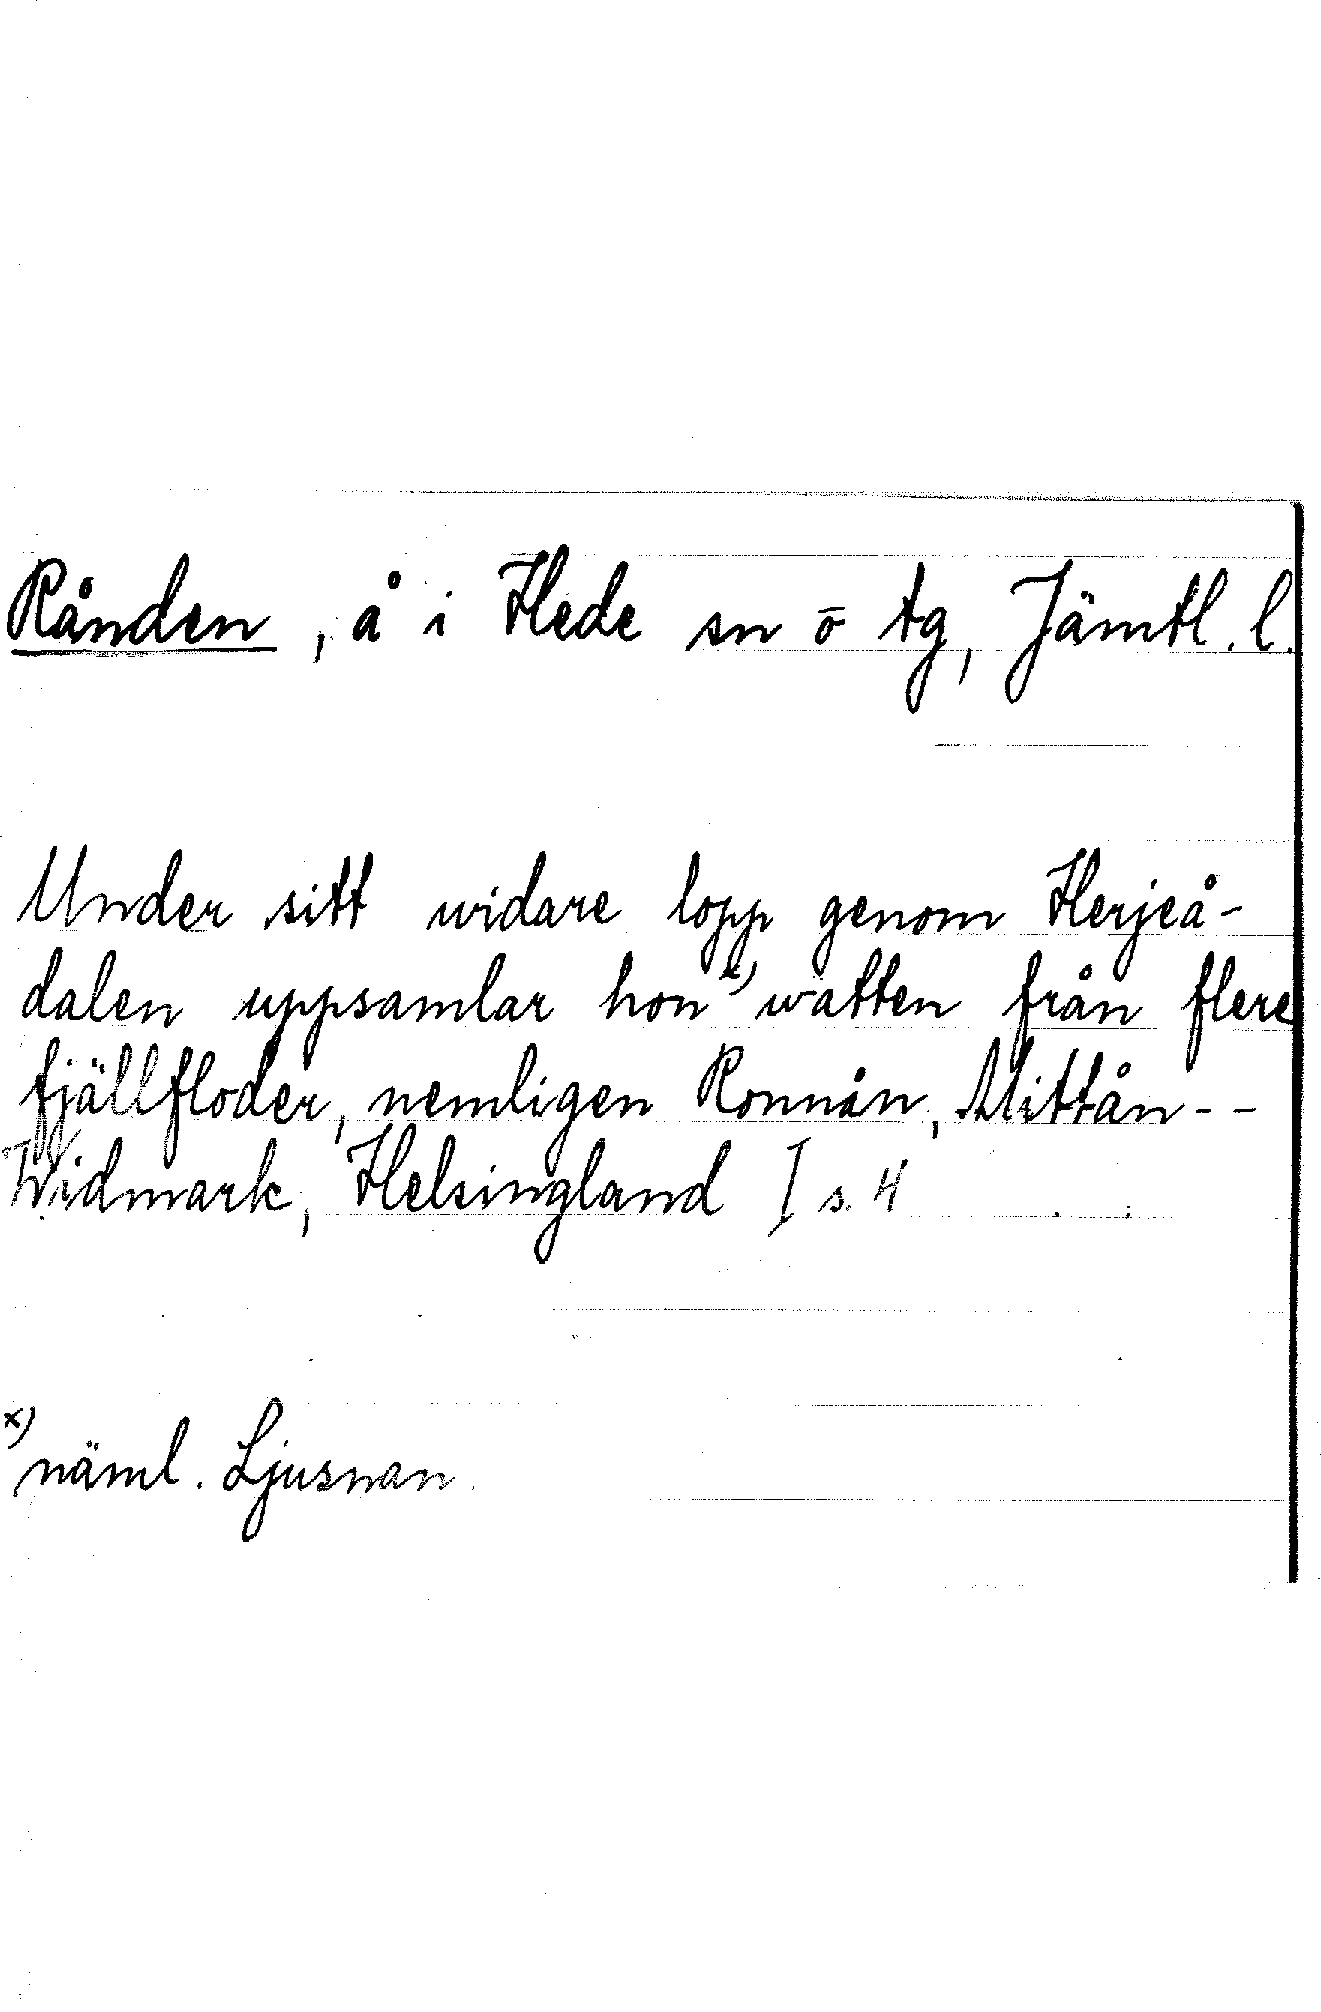 Rånden, å i Hede sn o tg, Jämtl. l.
Under sitt widare lopp genom Herjeå-
dalen uppsamlar hon x) watten från flere
fjällfloder, nemligen Ronnån, Mittån --
Widmark, Helsingland I s. 4
x) näml. Ljusnan